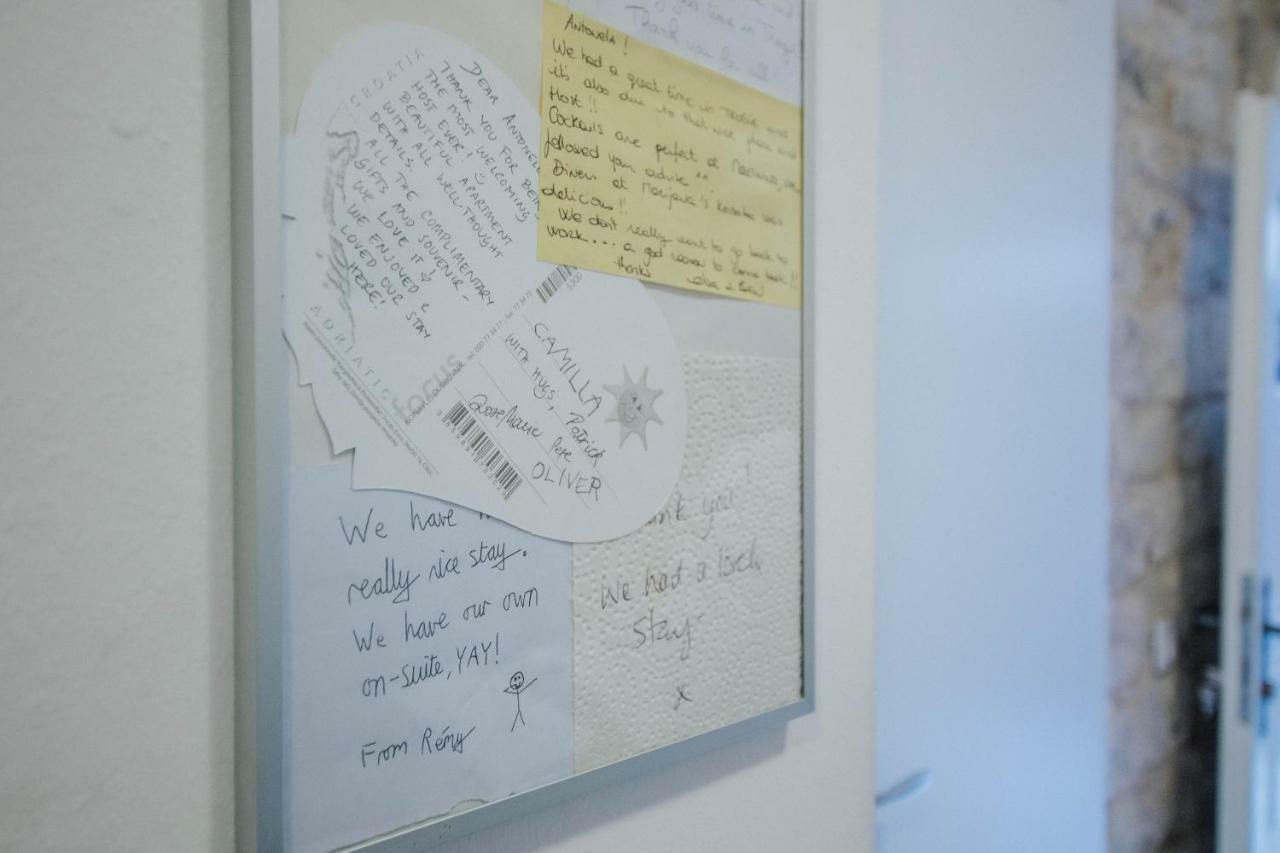 Thank you for all!
Antonela!
We had a great time in Trogir and
it's also due to that nice place and
Host!!
Cocktails are perfect at
followed your advise ^^
Diner at Marijana's Konoba was
delicious!!
We don't really want to go back to
work... a good reason to come back!!
thanks
CROATIA
DEAR ANTONELA
THANK YOU FOR BEING
THE MOST WELCOMING
HOST EVER!
BEAUTIFUL APARTMENT
WITH ALL WELL-THOUGHT
DETAILS.
ALL THE COMPLIMENTARY
GIFTS AND SOUVENIR -
WE LOVE IT!
WE ENJOYED &
LOVED OUR STAY
HERE!
ADRIATIC
FOCUS
5300
CAMILLA
WITH HUGS, Patrick
Rose/Marie Pete
OLIVER
We have
really nice stay.
We have our own
on-suite, YAY!
From Rémy
you!
We had a lovely
stay
x